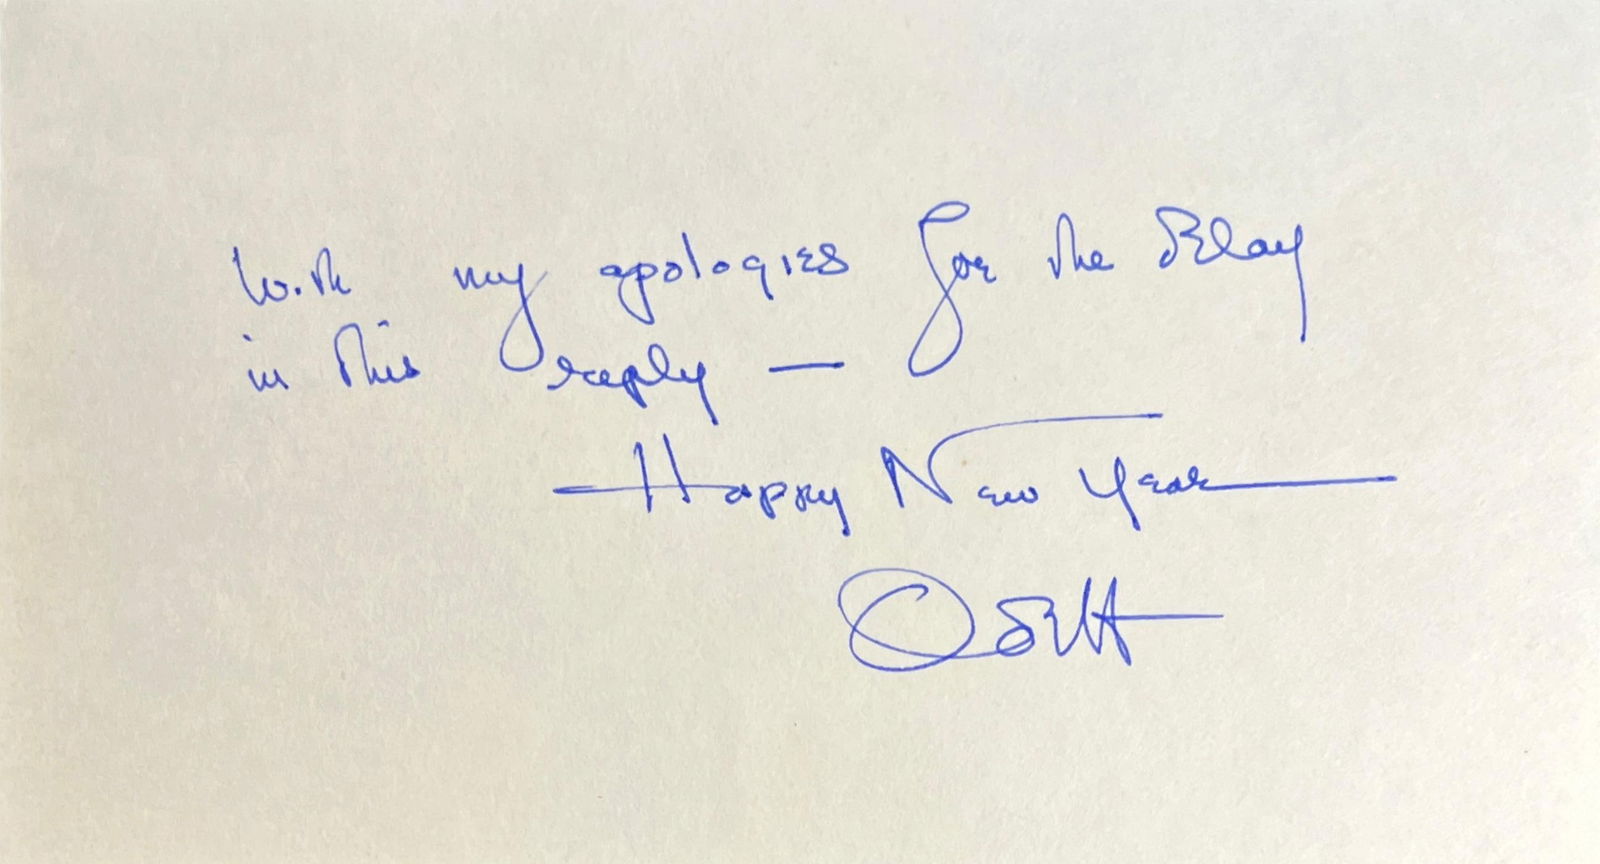 With my apologies for the delay
in this reply —
Happy New Year